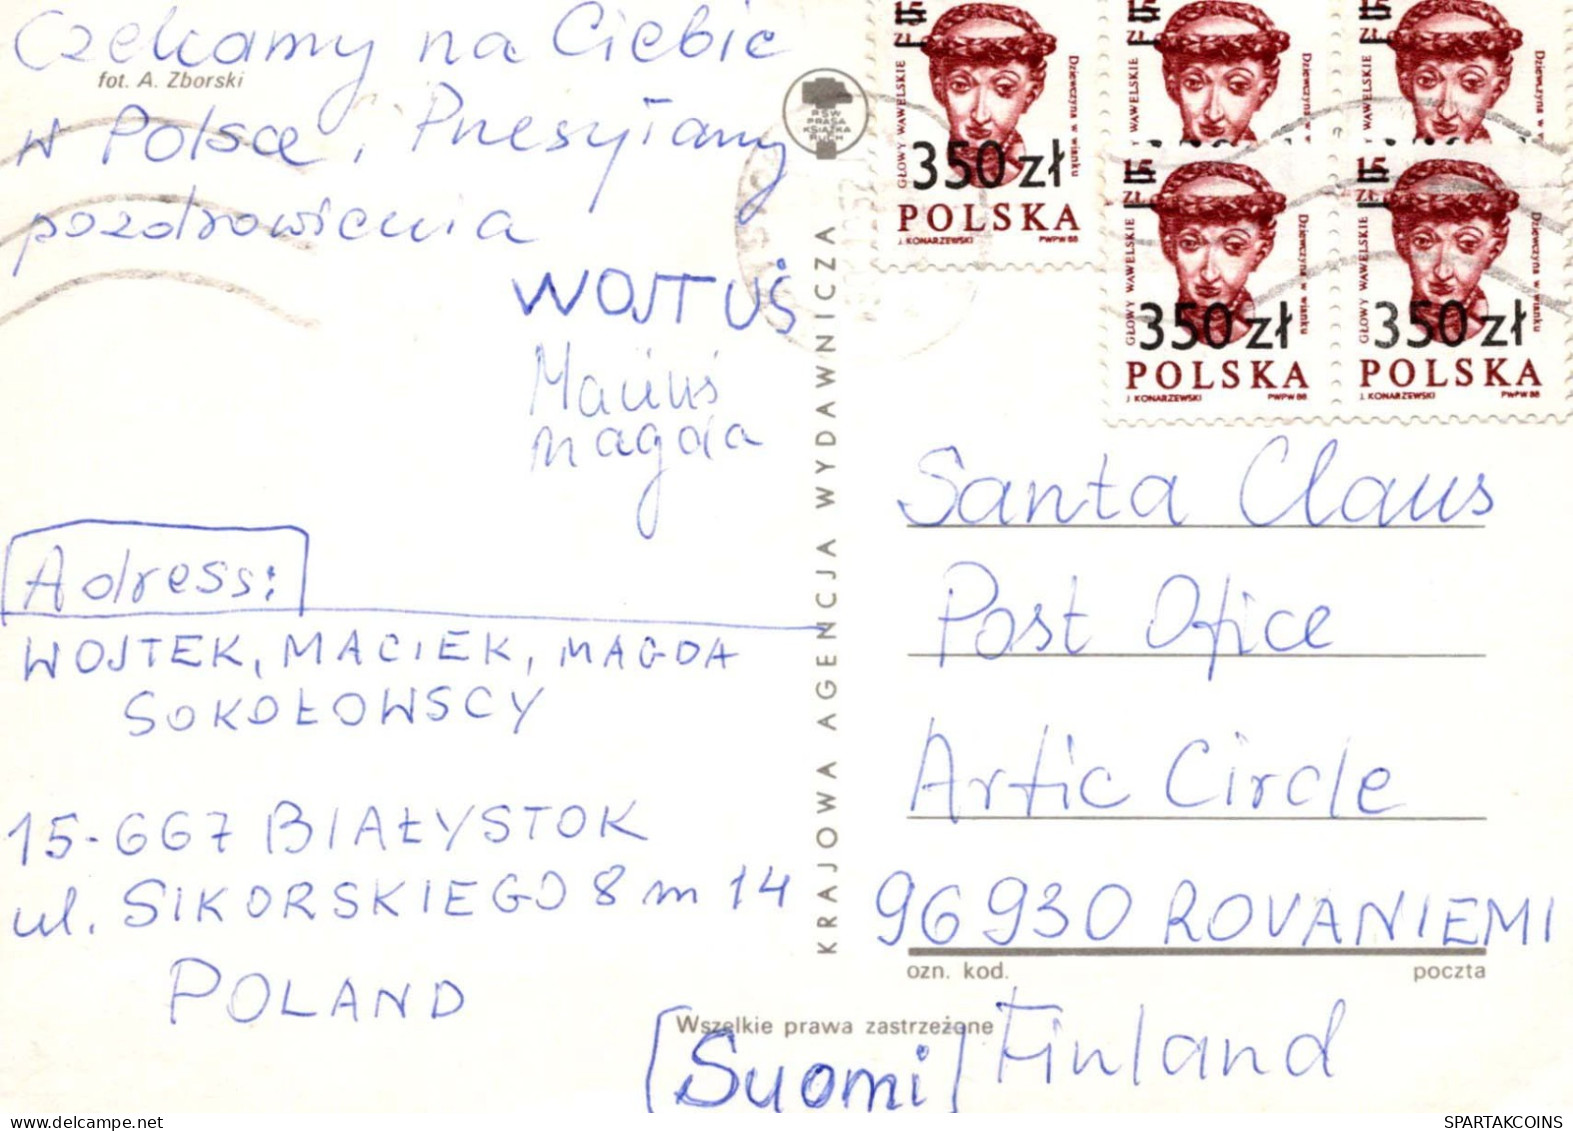 Czekamy na Ciebie
fot. A. Zborski
w Polsce, Pnesyłamy
pozdrowienia
WOJTUŚ
Maciuś
Magda
Adress:
WOJTEK, MACIEK, MAGDA
SOKOŁOWSCY
15-667 BIAŁYSTOK
ul. SIKORSKIEGO 8 m 14
POLAND
PSW
PRASA
KSIĄŻKA
RUCH
KRAJOWA AGENCJA WYDAWNICZA
15
ZŁ
GŁOWY WAWELSKIE
Dziewczyna w wianku
350 zł
POLSKA
J. KONARZEWSKI PWPW 88
15
ZŁ
WAWELSKIE
Dziewczyna w wianku
15
ZŁ
WAWELSKIE
Dziewczyna w
15
ZŁ
GŁOWY WAWELSKIE
Dziewczyna w wianku
350 zł
POLSKA
J. KONARZEWSKI PWPW 88
15
ZŁ
GŁOWY WAWELSKIE
Dziewczyna w wianku
350 zł
POLSKA
J. KONARZEWSKI PWPW 88
Santa Claus
Post Ofice
Artic Circle
96930 ROVANIEMI
ozn. kod. poczta
Finland
Wszelkie prawa zastrzeżone
[Suomi]
SPARTAKCOINS